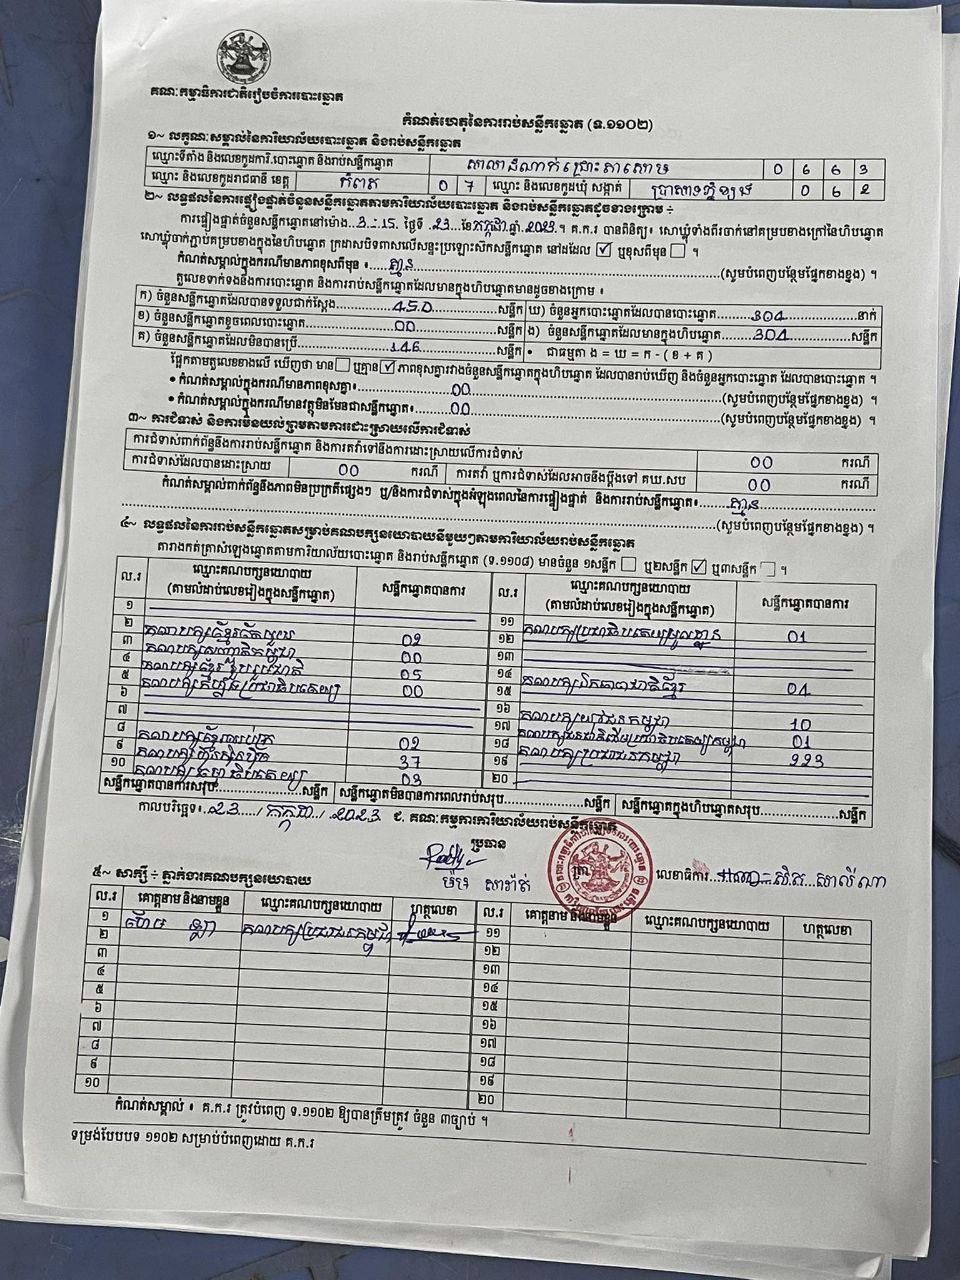 គណៈកម្មាធិការជាតិរៀបចំការបោះឆ្នោត
កំណត់ហេតុនៃការរាប់សន្លឹកឆ្នោត (ទ.១១០២)
១~ លក្ខណៈសម្គាល់នៃការិយាល័យបោះឆ្នោត និងរាប់សន្លឹកឆ្នោត
ឈ្មោះទីតាំង និងលេខកូដការិ.បោះឆ្នោត និងរាប់សន្លឹកឆ្នោត សាលាដំណាក់ជ្រោះតាសោម 0 6 6 3
ឈ្មោះ និងលេខកូដរាជធានី ខេត្ត កំពត 0 7 ឈ្មោះ និងលេខកូដឃុំ សង្កាត់ ប្រាសាទភ្នំខ្យង 0 6 2
២~ លទ្ធផលនៃការផ្ទៀងផ្ទាត់ចំនួនសន្លឹកឆ្នោតតាមការិយាល័យបោះឆ្នោត និងរាប់សន្លឹកឆ្នោតដូចខាងក្រោម ៖
ការផ្ទៀងផ្ទាត់ចំនួនសន្លឹកឆ្នោតនៅម៉ោង 3:15 ថ្ងៃទី 23 ខែ កក្កដា ឆ្នាំ 2023 ។ គ.ក.រ បានពិនិត្យ៖ សោឃ្លុំទាំងពីរចាក់នៅគម្របខាងក្រៅនៃហិបឆ្នោត
សោឃ្លុំចាក់ភ្ជាប់គម្របខាងក្នុងនៃហិបឆ្នោត ក្រដាសបិទពាសលើសន្ទះប្រឡោះស៊កសន្លឹកឆ្នោត នៅដដែល ☑ ឬខុសពីមុន ☐ ។
កំណត់សម្គាល់ក្នុងករណីមានភាពខុសពីមុន ៖ គ្មាន (សូមបំពេញបន្ថែមផ្នែកខាងខ្នង) ។
តួលេខទាក់ទងនឹងការបោះឆ្នោត និងការរាប់សន្លឹកឆ្នោតដែលមានក្នុងហិបឆ្នោតមានដូចខាងក្រោម ៖
ក) ចំនួនសន្លឹកឆ្នោតដែលបានទទួលជាក់ស្ដែង 450 សន្លឹក ឃ) ចំនួនអ្នកបោះឆ្នោតដែលបានបោះឆ្នោត 304 នាក់
ខ) ចំនួនសន្លឹកឆ្នោតខូចពេលបោះឆ្នោត 00 សន្លឹក ង) ចំនួនសន្លឹកឆ្នោតដែលមានក្នុងហិបឆ្នោត 304 សន្លឹក
គ) ចំនួនសន្លឹកឆ្នោតដែលមិនបានប្រើ 146 សន្លឹក • ជាធម្មតា ង = ឃ = ក - ( ខ + គ )
ផ្អែកតាមតួលេខខាងលើ ឃើញថា មាន ☐ ឬគ្មាន ☑ ភាពខុសគ្នារវាងចំនួនសន្លឹកឆ្នោតក្នុងហិបឆ្នោត ដែលបានរាប់ឃើញ និងចំនួនអ្នកបោះឆ្នោត ដែលបានបោះឆ្នោត ។
• កំណត់សម្គាល់ក្នុងករណីមានភាពខុសគ្នា៖ 00 (សូមបំពេញបន្ថែមផ្នែកខាងខ្នង) ។
• កំណត់សម្គាល់ក្នុងករណីមានវត្ថុមិនមែនជាសន្លឹកឆ្នោត៖ 00 (សូមបំពេញបន្ថែមផ្នែកខាងខ្នង) ។
៣~ ការជំទាស់ និងការមិនយល់ព្រមតាមការដោះស្រាយលើការជំទាស់
ការជំទាស់ពាក់ព័ន្ធនឹងការរាប់សន្លឹកឆ្នោត និងការតវ៉ាទៅនឹងការដោះស្រាយលើការជំទាស់ 00 ករណី
ការជំទាស់ដែលបានដោះស្រាយ 00 ករណី ការតវ៉ា ឬការជំទាស់ដែលអាចនឹងប្ដឹងទៅ គឃ.សប 00 ករណី
កំណត់សម្គាល់ពាក់ព័ន្ធនឹងភាពមិនប្រក្រតីផ្សេងៗ ឬ/និងការជំទាស់ក្នុងអំឡុងពេលនៃការផ្ទៀងផ្ទាត់ និងការរាប់សន្លឹកឆ្នោត៖ គ្មាន
(សូមបំពេញបន្ថែមផ្នែកខាងខ្នង) ។
៤~ លទ្ធផលនៃការរាប់សន្លឹកឆ្នោតសម្រាប់គណបក្សនយោបាយនីមួយៗតាមការិយាល័យរាប់សន្លឹកឆ្នោត
តារាងកត់ត្រាសំឡេងឆ្នោតតាមការិយាល័យបោះឆ្នោត និងរាប់សន្លឹកឆ្នោត (ទ.១១០៨) មានចំនួន ១សន្លឹក ☐ ឬ២សន្លឹក ☑ ឬ៣សន្លឹក ☐ ។
ល.រ ឈ្មោះគណបក្សនយោបាយ (តាមលំដាប់លេខរៀងក្នុងសន្លឹកឆ្នោត) សន្លឹកឆ្នោតបានការ ល.រ ឈ្មោះគណបក្សនយោបាយ (តាមលំដាប់លេខរៀងក្នុងសន្លឹកឆ្នោត) សន្លឹកឆ្នោតបានការ
១ ១១
២ គណបក្សខ្មែរតែមួយ 02 ១២ គណបក្សប្រជាធិបតេយ្យមូលដ្ឋាន 01
៣ គណបក្សសញ្ជាតិកម្ពុជា 00 ១៣
៤ គណបក្សខ្មែររួបរួមជាតិ 05 ១៤ គណបក្សឯកភាពជាតិខ្មែរ 04
៥ គណបក្សសំបុកឃ្មុំប្រជាធិបតេយ្យ 00 ១៥
៦ ១៦ គណបក្សយុវជនកម្ពុជា 10
៧ ១៧ គណបក្សជនជាតិដើមប្រជាធិបតេយ្យកម្ពុជា 01
៨ គណបក្សខ្មែរអភិរក្ស 02 ១៨ គណបក្សប្រជាជនកម្ពុជា 223
៩ គណបក្សហ៊្វុនស៊ិនប៉ិច 37 ១៩
១០ គណបក្សធម្មាធិបតេយ្យ 03 ២០
សន្លឹកឆ្នោតបានការសរុប សន្លឹក សន្លឹកឆ្នោតមិនបានការពេលរាប់សរុប សន្លឹក សន្លឹកឆ្នោតក្នុងហិបឆ្នោតសរុប សន្លឹក
កាលបរិច្ឆេទ៖ 23 / កក្កដា / 2023 ជ. គណៈកម្មការការិយាល័យរាប់សន្លឹកឆ្នោត
ប្រធាន
លេខាធិការ
៥~ សាក្សី ៖ ភ្នាក់ងារគណបក្សនយោបាយ
ល.រ គោត្តនាម និងនាមខ្លួន ឈ្មោះគណបក្សនយោបាយ ហត្ថលេខា ល.រ គោត្តនាម និងនាមខ្លួន ឈ្មោះគណបក្សនយោបាយ ហត្ថលេខា
១ ហែម ឡា គណបក្សប្រជាជនកម្ពុជា ១១
២ ១២
៣ ១៣
៤ ១៤
៥ ១៥
៦ ១៦
៧ ១៧
៨ ១៨
៩ ១៩
១០ ២០
កំណត់សម្គាល់ ៖ គ.ក.រ ត្រូវបំពេញ ទ.១១០២ ឱ្យបានត្រឹមត្រូវ ចំនួន ៣ច្បាប់ ។
ទម្រង់បែបបទ ១១០២ សម្រាប់បំពេញដោយ គ.ក.រ